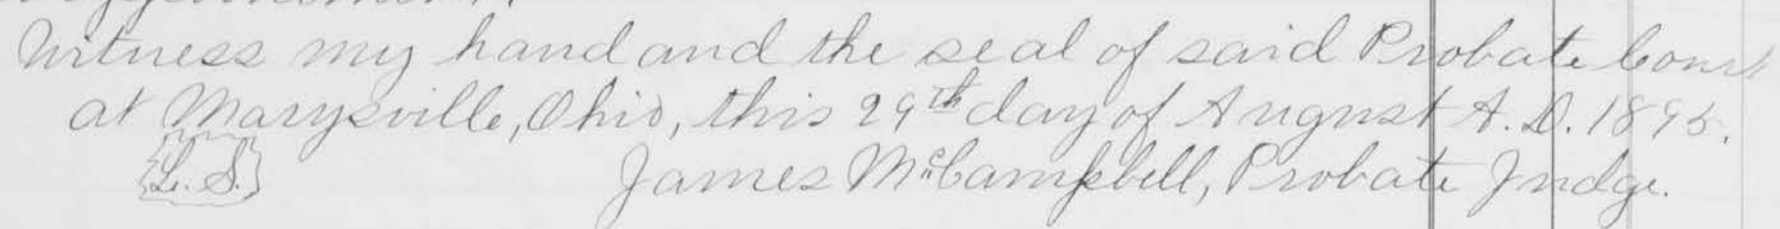 Witness my hand and the seal of said Probate Court
at Marysville, Ohio, this 29th day of August A.D. 1895.
L. S.
James McCampbell, Probate Judge.